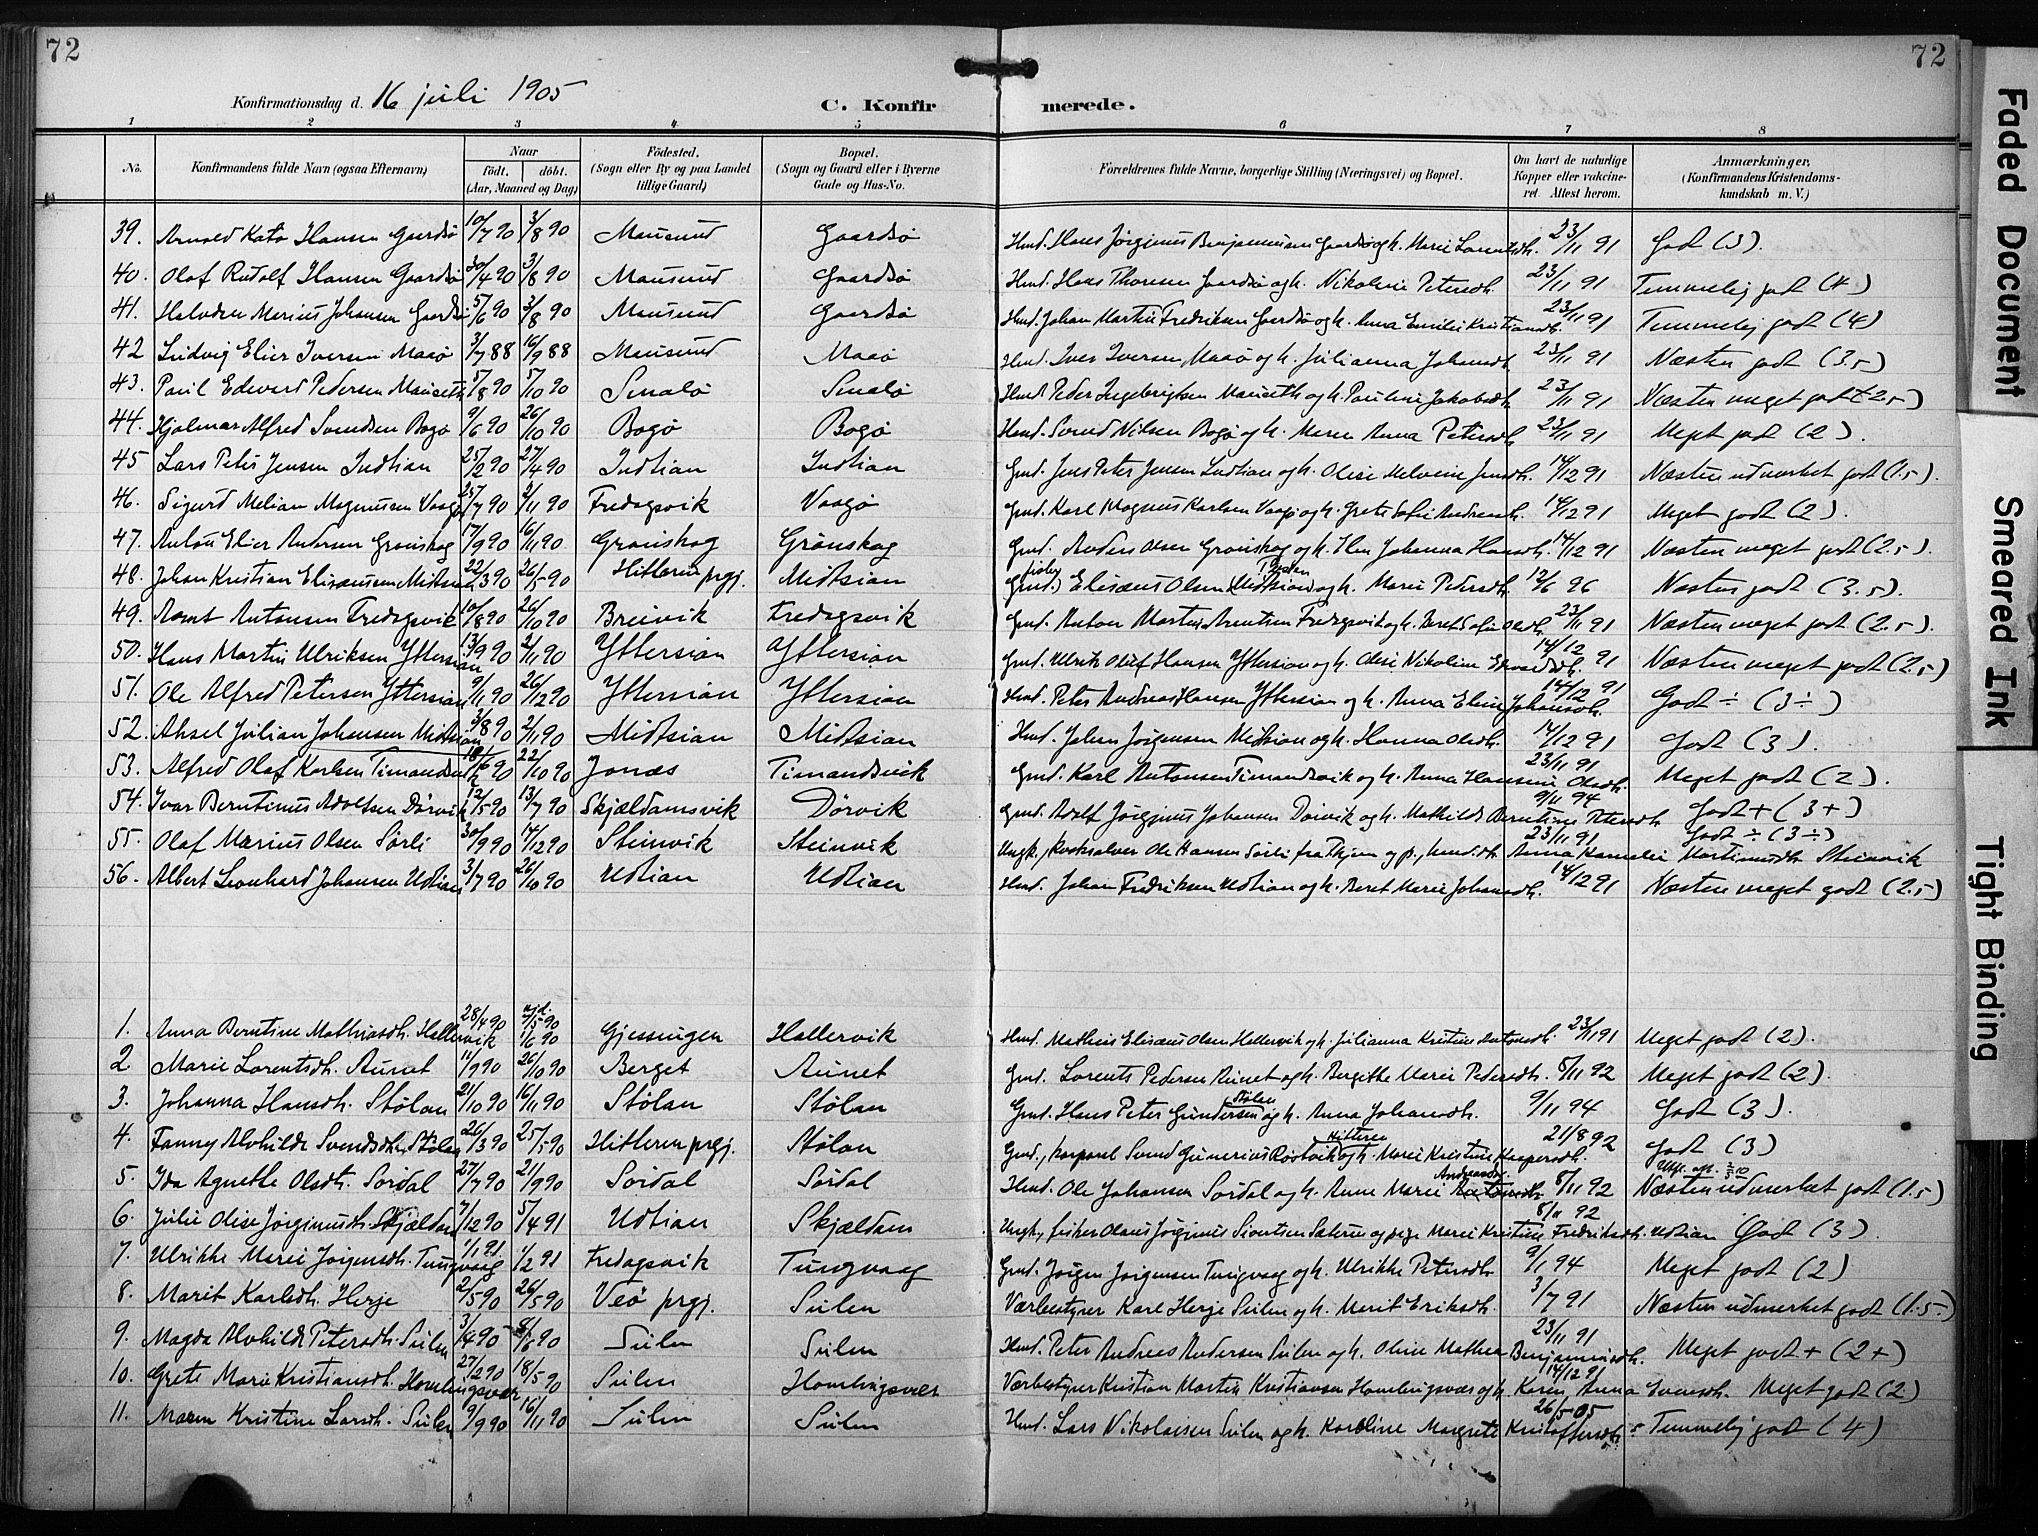 72
72
Konfirmationsdag d. 16 juli 1905
C. Konfir merede.
1 2 3 4 5 6 7 8
No. Konfirmandens fulde Navn (ogsaa Efternavn) Naar født. døbt. (Aar, Maaned og Dag) Fødested. (Sogn eller By og paa Landet tillige Gaard) Bopæl. (Sogn og Gaard eller i Byerne Gade og Hus-No. Forældrenes fulde Navne, borgerlige Stilling (Næringsvei) og Bopæl. Om havt de naturlige Kopper eller vakcineret. Attest herom. Anmærkninger, (Konfirmandens Kristendomskundskab m. V.)
39. Arnold Kato Hansen Gaardsø 10/7 90 3/8 90 Mausund Gaardsø Hmd. Hans Jørginus Benjaminsen Gaardsø og h. Marie Lorentsdh. 23/11 91 Godt (3).
40. Olaf Rudolf Hansen Gaardsø 30/4 90 3/8 90 Mausund Gaardsø Hmd. Hans Thoresen Gaardsø og h. Nikoline Petersdh. 23/11 91 Temmelig godt (4)
41. Halvdan Marius Johansen Gaardsø 5/6 90 3/8 90 Mausund Gaardsø Hmd. Johan Martin Fredriksen Gaardsø og h. Anna Emilie Kristiansdh. 23/11 91 Temmelig godt (4)
42 Ludvig Elier Iversen Maaø 3/7 88 16/9 88 Mausund Maaø Hmd. Iver Iversen Maaø og h. Julianna Johansdh. 23/11 91 Næsten godt (3.5)
43. Paul Edvard Pedersen 5/8 90 5/10 90 Smalø Smalø Hmd. Peder Ingebrigtsen og h. Pauline Jakobsdh. 23/11 91 Næsten meget godt (2.5)
44. Hjalmar Alfred Svendsen Bogø 9/6 90 26/10 90 Bogø Bogø Hmd. Svend Nilsen Bogø og h. Maren Anna Petersdh. 23/11 91 Meget godt (2).
45 Lars Peter Jensen Indtian 25/2 90 27/4 90 Indtian Indtian Gmd. Jens Peter Jensen Indtian og h. Olise Jensdh. 14/12 91 Næsten udmerket godt (1.5).
46. Sigurd Melian Magnusen Vaagø 25/7 90 2/11 90 Fredagsvik Vaagø Gmd. Karl Magnus Karlsen Vaagø og h. Grete Sofie Andreasdh. 14/12 91 Meget godt (2).
47. Anton Elier Andersen Grønskag 17/9 90 16/11 90 Grønskag Grønskag Gmd. Anders Olsen Grønskag og h. Elen Johanna Hansdh. 14/12 91 Næsten meget godt (2.5).
48. Johan Kristian Elisæussen Midtsian 22/3 90 26/5 90 Hitteren prgj. Midtsian Gmd. Elisæus Olsen Midtsian og h. Marie Pedersdh. 12/6 96 Næsten godt (3.5).
49. Arnt Antonsen Fredagsvik 10/8 90 26/10 90 Breivik Fredagsvik Gmd. Anton Martin Arntsen Fredagsvik og h. Beret Sofie Olsdh. 23/11 91 Næsten meget godt (2.5).
50. Hans Martin Ulriksen Yttersian 13/9 90 2/11 90 Yttersian Yttersian Gmd. Ulrik Oluf Hansen Yttersian og h. Olise Nikoline Edvardsdh. 14/12 91 Næsten meget godt (2.5)
51. Ole Alfred Petersen Yttersian 9/11 90 26/12 90 Yttersian Yttersian Hmd. Peter Andreas Hansen Yttersian og h. Anna Elise Johansdh. 14/12 91 Godt ÷ (3 ÷)
52. Aksel Julian Johansen Midtsian 3/8 90 2/11 90 Midtsian Midtsian Hmd. Johan Jørgensen Midtsian og h. Hanna Olsdh. 14/12 91 Godt (3).
53. Alfred Olaf Karlsen Timandsvik 18/6 90 22/10 90 Jonæs Timandsvik Gmd. Karl Antonsen Timandsvik og h. Anna Hansine Olsdh. 23/11 91 Meget godt (2).
54. Ivar Berntinus Adolfsen Dørvik 12/5 90 13/7 90 Skjældamsvik Dørvik Gmd. Adolf Jørginus Johansen Dørvik og h. Mathilde Berntine Petersdh. 9/11 94 Godt + (3+)
55. Olaf Marius Olsen Sørli 30/9 90 14/12 90 Steinvik Steinvik Ungk., Ole Hansen Sørli fra Thjem og p., Anna Kornelie Martinusdh. Steinvik 23/11 91 Godt ÷ (3 ÷)
56. Albert Leonhard Johansen Udtian 3/7 90 26/10 90 Udtian Udtian Hmd. Johan Fredriksen Udtian og h. Beret Marie Johansdh. 14/12 91 Næsten meget godt (2.5)
1. Anna Berntine Mathiasdh. Hallervik 28/4 90 1/6 90 Gjessingen Hallervik Hmd. Mathias Elisæus Olsen Hallervik og h. Julianna Kristine Antonsdh. 23/11 91 Meget godt (2).
2 Marie Lorentsdh. Aunet 11/9 90 26/10 90 Berget Aunet Gmd. Lorents Pedersen Aunet og h. Bergitte Marie Pedersdh. 8/11 92 Meget godt (2).
3. Johanna Hansdh. Stølan 21/10 90 16/11 90 Stølan Stølan Gmd. Hans Peter Gundersen Stølan og h. Anna Johansdh. 9/11 94 Godt (3).
4. Fanny Alvhilde Svendsdh. Stølan 26/3 90 25/5 90 Hitteren prgj. Stølan Gmd., korporal Svend Gunerius Røstvik Hitteren og h. Marie Kristine Kaspersdh. 21/8 92 Godt (3)
5. Ida Agnette Olsdt. Sørdal 27/7 90 21/9 90 Sørdal Sørdal Hmd. Ole Johansen Sørdal og h. Anne Marie Andreasdh. 8/11 92 Næsten udmerket godt (1.5)
6. Julie Olise Jørginusdh. Skjældam 7/12 90 5/4 91 Udtian Skjældam Ungk., fisker Olaus Jørginus Sivertsen Sæteren og pige Marie Kristine Fredriksdh. Udtian 8/11 92 Godt (3).
7. Ulrikke Marie Jørgensdh. Tungvaag 1/1 91 1/2 91 Fredagsvik Tungvaag Gmd. Jørgen Jørgensen Tungvaag og h. Ulrikke Petersdh. 9/1 94 Meget godt (2)
8. Marit Karlsdh. Herje 2/5 90 26/5 90 Veø prgj. Sulen Værbestyrer Karl Herje Sulen og h. Marit Eriksdh. 3/7 91 Næsten udmerket godt (1.5)
9. Magda Alvhilde Petersdh. Sulen 3/4 90 8/6 90 Sulen Sulen Hmd. Peter Andreas Andersen Sulen og h. Oline Mathea Benjaminsdh. 23/11 91 Meget godt + (2+)
10. Grete Marie Kristiansdh. Homlingsvær 27/2 90 18/5 90 Sulen Homlingsvær Værbestyrer Kristian Martin Kristiansen Homlingsvær og h. Karen Anna Svensdh. 14/12 91 Meget godt (2)
11. Maren Kristine Larsdh. Sulen 9/9 90 16/11 90 Sulen Sulen Hmd. Lars Nikolaisen Sulen og h. Karoline Margrete Kristoffersdh. 26/5 05 Temmelig godt (4)
Faded Document
Smeared Ink
Tight Binding